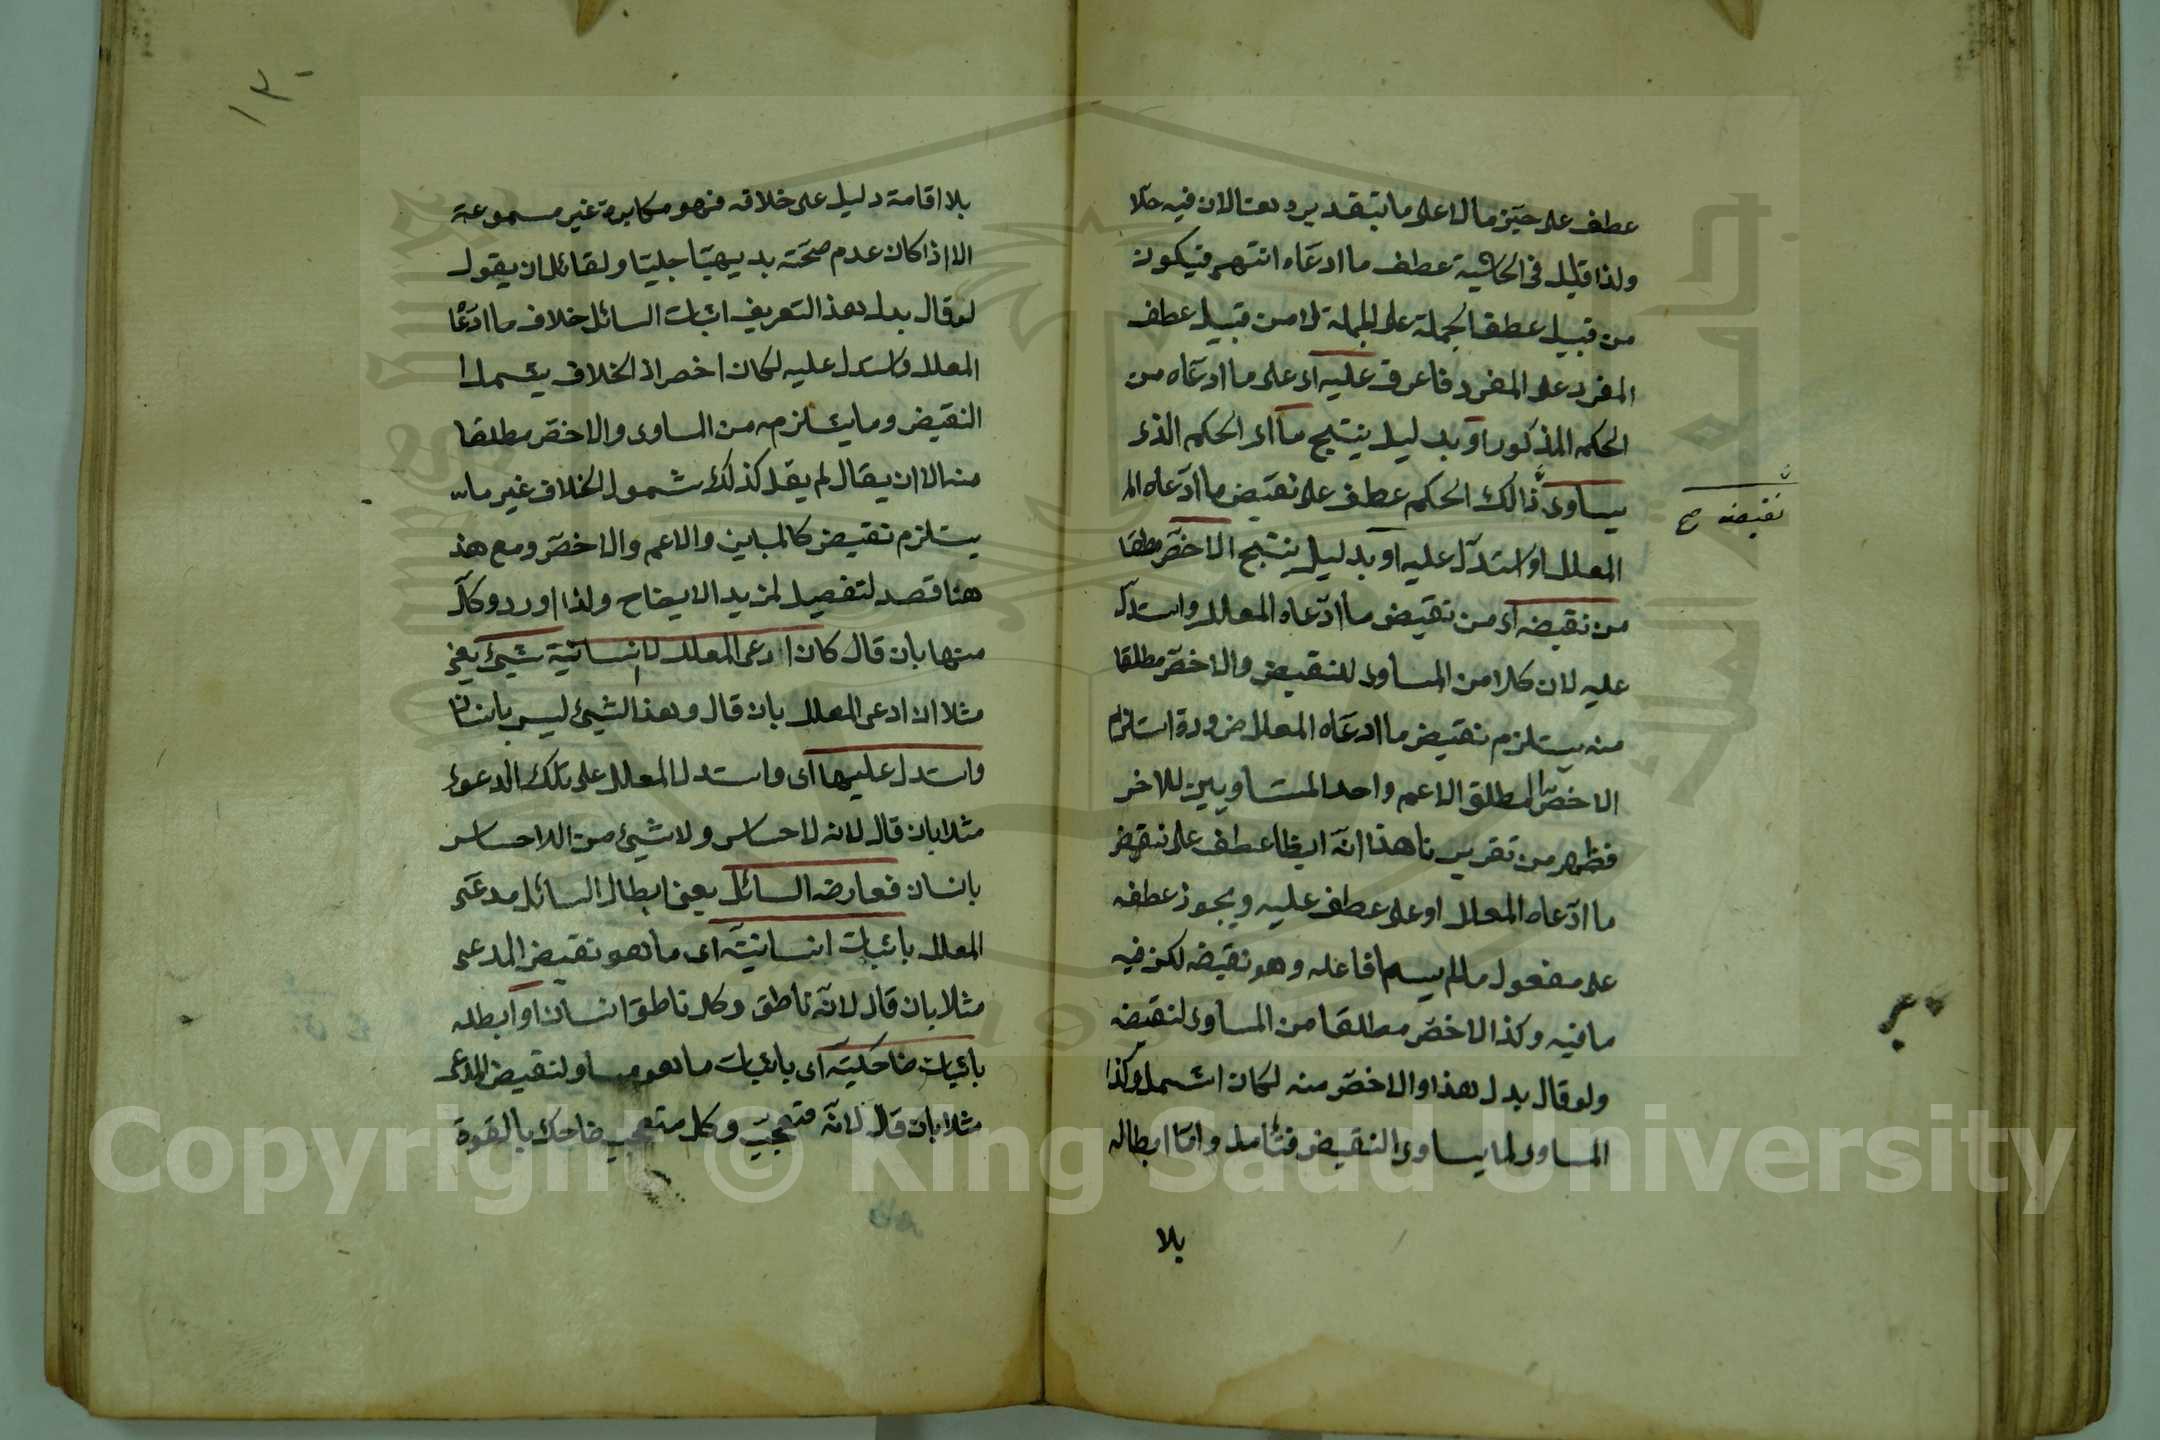 عطف على حيز ما لا على ما بتقدير وهنا لان فيه حلا
ولذا قيل فى الحاشية عطف ما ادعاه انتهى فيكون
من قبيل عطف الجملة على الجملة لا من قبيل عطف
المفرد على المفرد فاعرف عليه اى على ما ادعاه من
الحكم المذكور او بدليل ينتج ما اى الحكم الذى
يساوى ذالك الحكم عطف على نقيض ما ادعاه الم
نقيضه صح
المعلل واستدل عليه او بدليل ينتج الاخص مطلقا
من نقيضه اى من نقيض ما ادعاه المعلل واستدل
عليه لان كلا من المساوى للنقيض والاخص مطلقا
منه يستلزم نقيض ما ادعاه المعلل ضرورة استلزام
الاخص المطلق الاعم واحد المتساويين للاخر
فظهر من تقريرنا هذا انه ايظا عطف على نقيض
ما ادعاه المعلل او على عطف عليه ويجوز عطفه
على مفعول مالم يسم فاعله وهو نقيضه لكن فيه
ما فيه وكذا الاخص مطلقا من المساوى لنقيضه
ولو قال بدل هذا والاخص منه لكان اشمل وكذا
المساوى لما يساوى النقيض فتأمل واما ابطاله
بلا
١٣٠
بلا اقامة دليل على خلافه فهو مكابرة غير مسموعة
الا اذا كان عدم صحته بديهيا جليا ولقائل ان يقول
لو قال بدل هذا التعريف اثبات السائل خلاف ما ادعا
المعلل واستدل عليه لكان اخصر اذ الخلاف يشمل ا
النقيض وما يستلزمه من المساوى والاخص مطلقا
منه الا ان يقال لم يقل كذلك شمول الخلاف غير ما
يستلزم نقيض كالمباين والاعم والاخص ومع هذ
هنا قصد لتفصيل لمزيد الايضاح ولذا اورد وكل
منها بأن قال كان ادعى المعلل لا انسانية شيئ يعنى
مثلا ان ادعى المعلل بان قال وهذا الشيئ ليس بانسان
واستدل عليها اى واستدل المعلل على تلك الدعوى
مثلا بان قال لانه لا حساس ولا شيئ من اللاحساس
بانسان فعارضه السائل يعنى ابطال السائل مدعى
المعلل باثبات انسانيته اى ما هو نقيض المدعى
مثلا بان قال لانه ناطق وكل ناطق انسان او ابطله
باثبات ضاحكيته اى باثبات ما هو مساو لنقيض المدعى
مثلا بان قال لانه متعجب وكل متعجب ضاحك بالقوة
Copyright © King Saud University